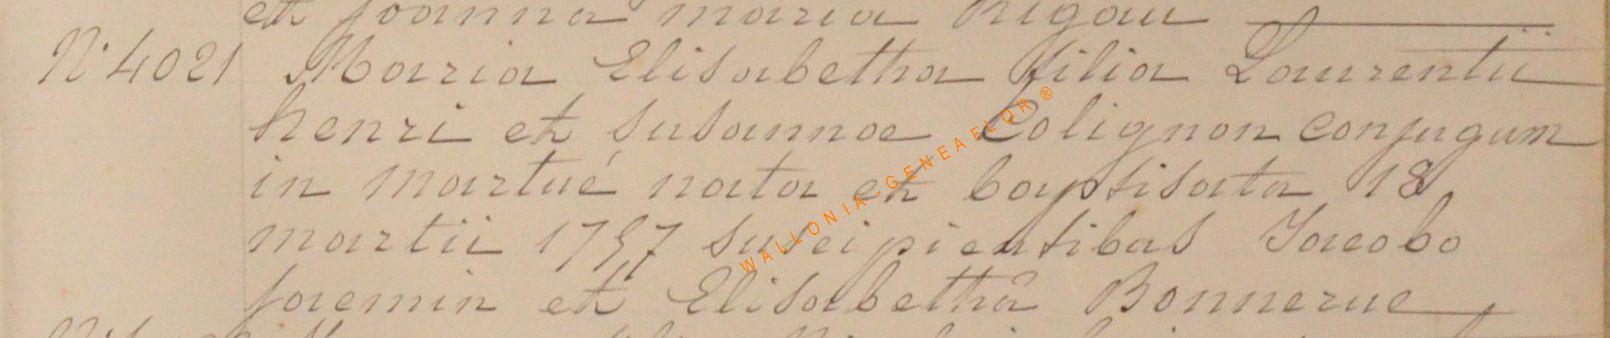 et joanna maria Rigau
N° 4021 Maria Elisabetha filia Laurentii
henri et susannae Colignon conjugum
in martué nata et baptisata 18
martii 1757 suscipientibus Jacobo
jacmin et Elisabethâ Bonnerue
WALLONIA-GENEAFLOR®